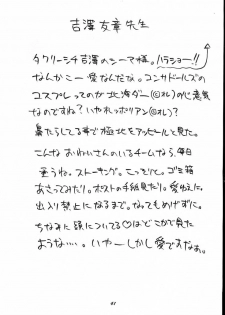 吉澤友章先生
タクリーシチ吉澤のシーマ様。ハラショー!!
なんかこー愛なんだな。コンサドールズの
コスプレってのが北海ダー(◎オレ)の心意気
なのですね?いやれっポリアン(◎オレ)?
鼻たらしてる事で極北をアッピールと見た。
こんなおねいさんのいるチームなら、毎日
通うね。ストーキング。こっそりと。ゴミ箱
あさってみたり。ポストの手紙見たり。愛ゆえに。
出入り禁止になるまで。なってもめげずに。
ちなみに頭についてる♡はどこかで見た
ような・・・・。いやーしかし愛ですなぁ。